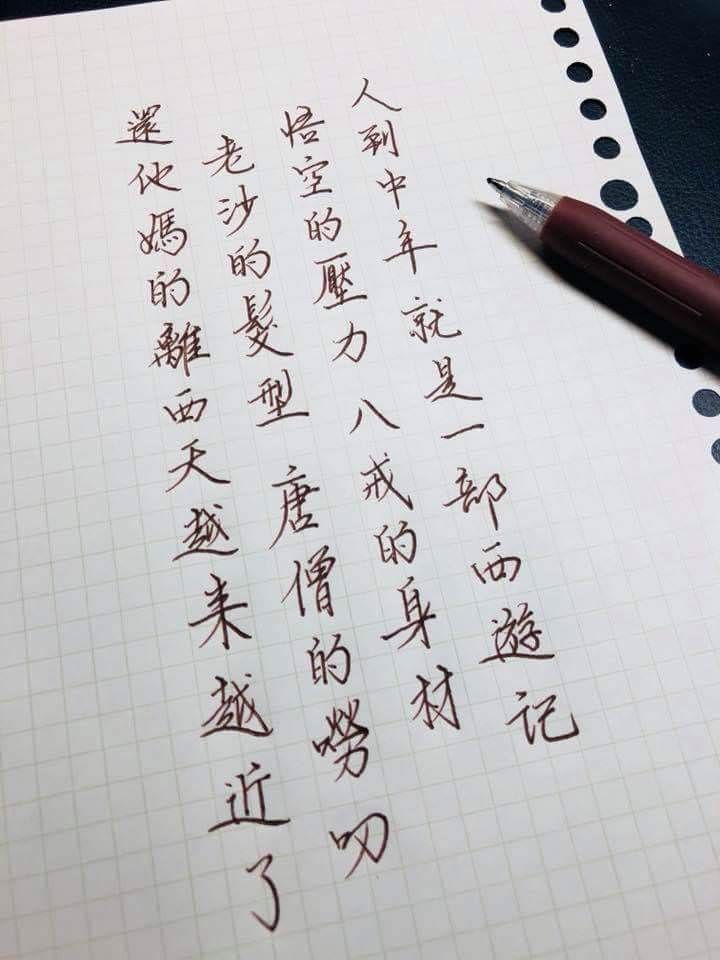 人到中年 就是一部西遊记
悟空的壓力 八戒的身材
老沙的髮型 唐僧的嘮叨
還他媽的離西天越来越近了